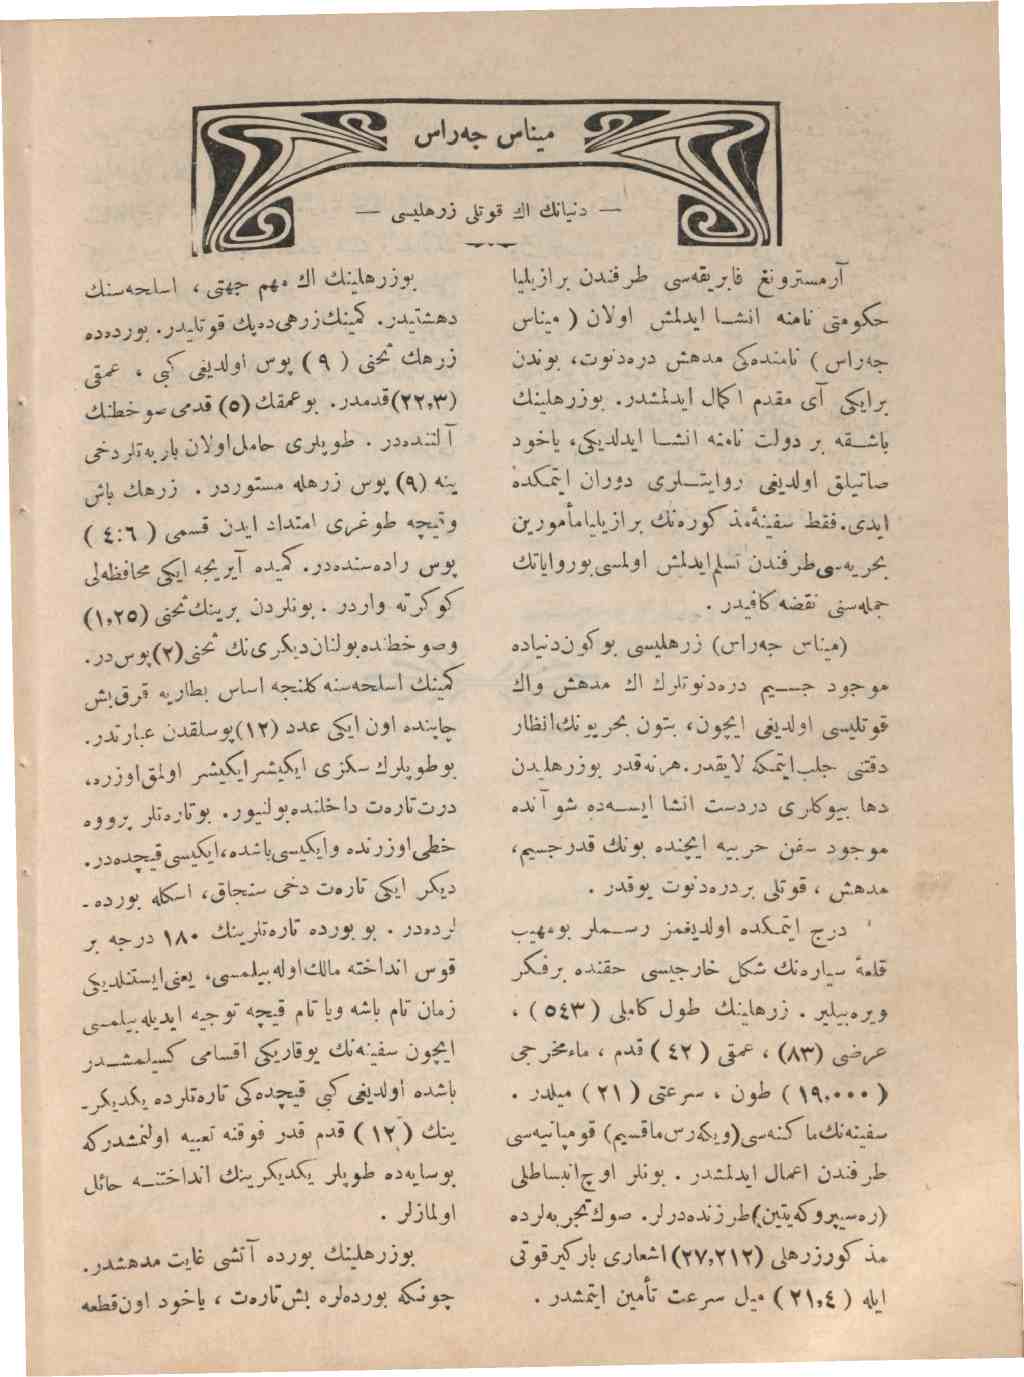 میناس جه‌راس
— دنیانك اك قوتلی زرهلیسی —
آرمسترونغ فابریقه‌سی طرفندن برازیلیا
حكومتی نامنه انشـا ایدلمش اولان ( میناس
جه‌راس ) نامنده‌كی مدهش دره‌دنوت، بوندن
برایكی آی مقدم اكمال ایدلمشدر. بوزرهلینك
باشـقه بر دولت نامنه انشـا ایدلدیكی، یاخود
صاتیلق اولدیغی روایتـلری دوران ایتمكده
ایدی. فقط سفینهٔ مذكوره‌نك برازیلیا مأمورین
بحریه‌سی طرفندن تسلم ایدلمش اولمسی بو روایاتك
جمله‌سنی نقضه كافیدر .
(میناس جه‌راس) زرهلیسی بوكون دنیاده
موجود جسـیم دره‌دنوتلرك اك مدهش واك
قوتلیسی اولدیغی ایچون، بتون بحریونك انظار
دقتنی جلب ایتمكه لایقدر. هرنه‌قدر بوزرهلیدن
دها بیوكلری دردست انشا ایسـه‌ده شو آنده
موجود سفن حربیه ایچنده بونك قدر جسیم،
مدهش ، قوتلی بر دره‌دنوت یوقدر .
درج ایتمـكده اولدیغمز رسـملر بو مهیب
قلعهٔ سیاره‌نك شكل خارجیسی حقنده برفكر
ویره‌بیلیر . زرهلینك طول كاملی ( ٥٤٣ ) ،
عرضی (٨٣) ، عمقی ( ٤٢ ) قدم ، ماء مخرجی
( ١٩,٠٠٠ ) طون ، سرعتی ( ٢١ ) میلدر .
سفینه‌نك ماكنه‌سی (ویكه‌رس ماقسیم) قومپانیه‌سی
طرفندن اعمال ایدلمشدر . بونلر اوچ انبساطلی
(ره‌سیپروكه‌یتین) طرزنده‌درلر. صوك تجربه‌لرده
مذكور زرهلی (٢٧,٢١٢) اشعاری بارگیر قوتی
ایله ( ٢١,٤ ) میل سرعت تأمین ایتمشدر .
بوزرهلینك اك مهم جهتی ، اسلحه‌سنك
دهشتیدر. كمینك زرهی ده پك قوتلیدر. بورده‌ده
زرهك ثخنی ( ٩ ) پوس اولدیغی كبی ، عمقی
(٢٢,٣) قدمدر. بو عمقك (٥) قدمی صو خطنك
آلتنده‌در . طوپلری حامل اولان باربه‌تلر دخی
ینه (٩) پوس زرهله مستوردر . زرهك باش
وقیچه طوغری امتداد ایدن قسمی ( ٤:٦ )
پوس راده‌سنده‌در. كمیده آیریجه ایكی محافظه‌لی
كوكرته واردر . بونلردن برینك ثخنی (١,٢٥)
وصو خطنده بولنان دیكری‌نك ثخنی (٢) پوس در.
كمینك اسلحه‌سنه كلنجه اساس بطاریه قرق بش
چاپنده اون ایكی عدد (١٢) پوسلقدن عبارتدر.
بو طوپلرك سكزی ایكیشر ایكیشر اولمق اوزره،
درت تاره‌ت داخلنده بولنیور. بو تاره‌تلر پرووه
خطی اوزرنده و ایكیسی باشده، ایكیسی قیچده‌در.
دیكر ایكی تاره‌ت دخی سنجاق، اسكله بورده‌-
لرده‌در . بو بورده تاره‌تلرینك ١٨٠ درجه بر
قوس انداخته مالك اوله‌بیلمسی، یعنی ایستنلدیكی
زمان تام باشه ویا تام قیچه توجیه ایدیله‌بیلمسی
ایچون سفینه‌نك یوقاریكی اقسامی كسیلمشـدر
باشده اولدیغی كبی قیچده‌كی تاره‌تلرده یكدیكر-
ینك ( ١٢ ) قدم قدر فوقنه تعبیه اولنمشدركه
بوسایه‌ده طوپلر یكدیكرینك انداختنـه حائل
اولمازلر .
بوزرهلینك بورده آتشی غایت مدهشدر.
چونكه بورده‌لره بش تاره‌ت ، یاخود اون قطعه